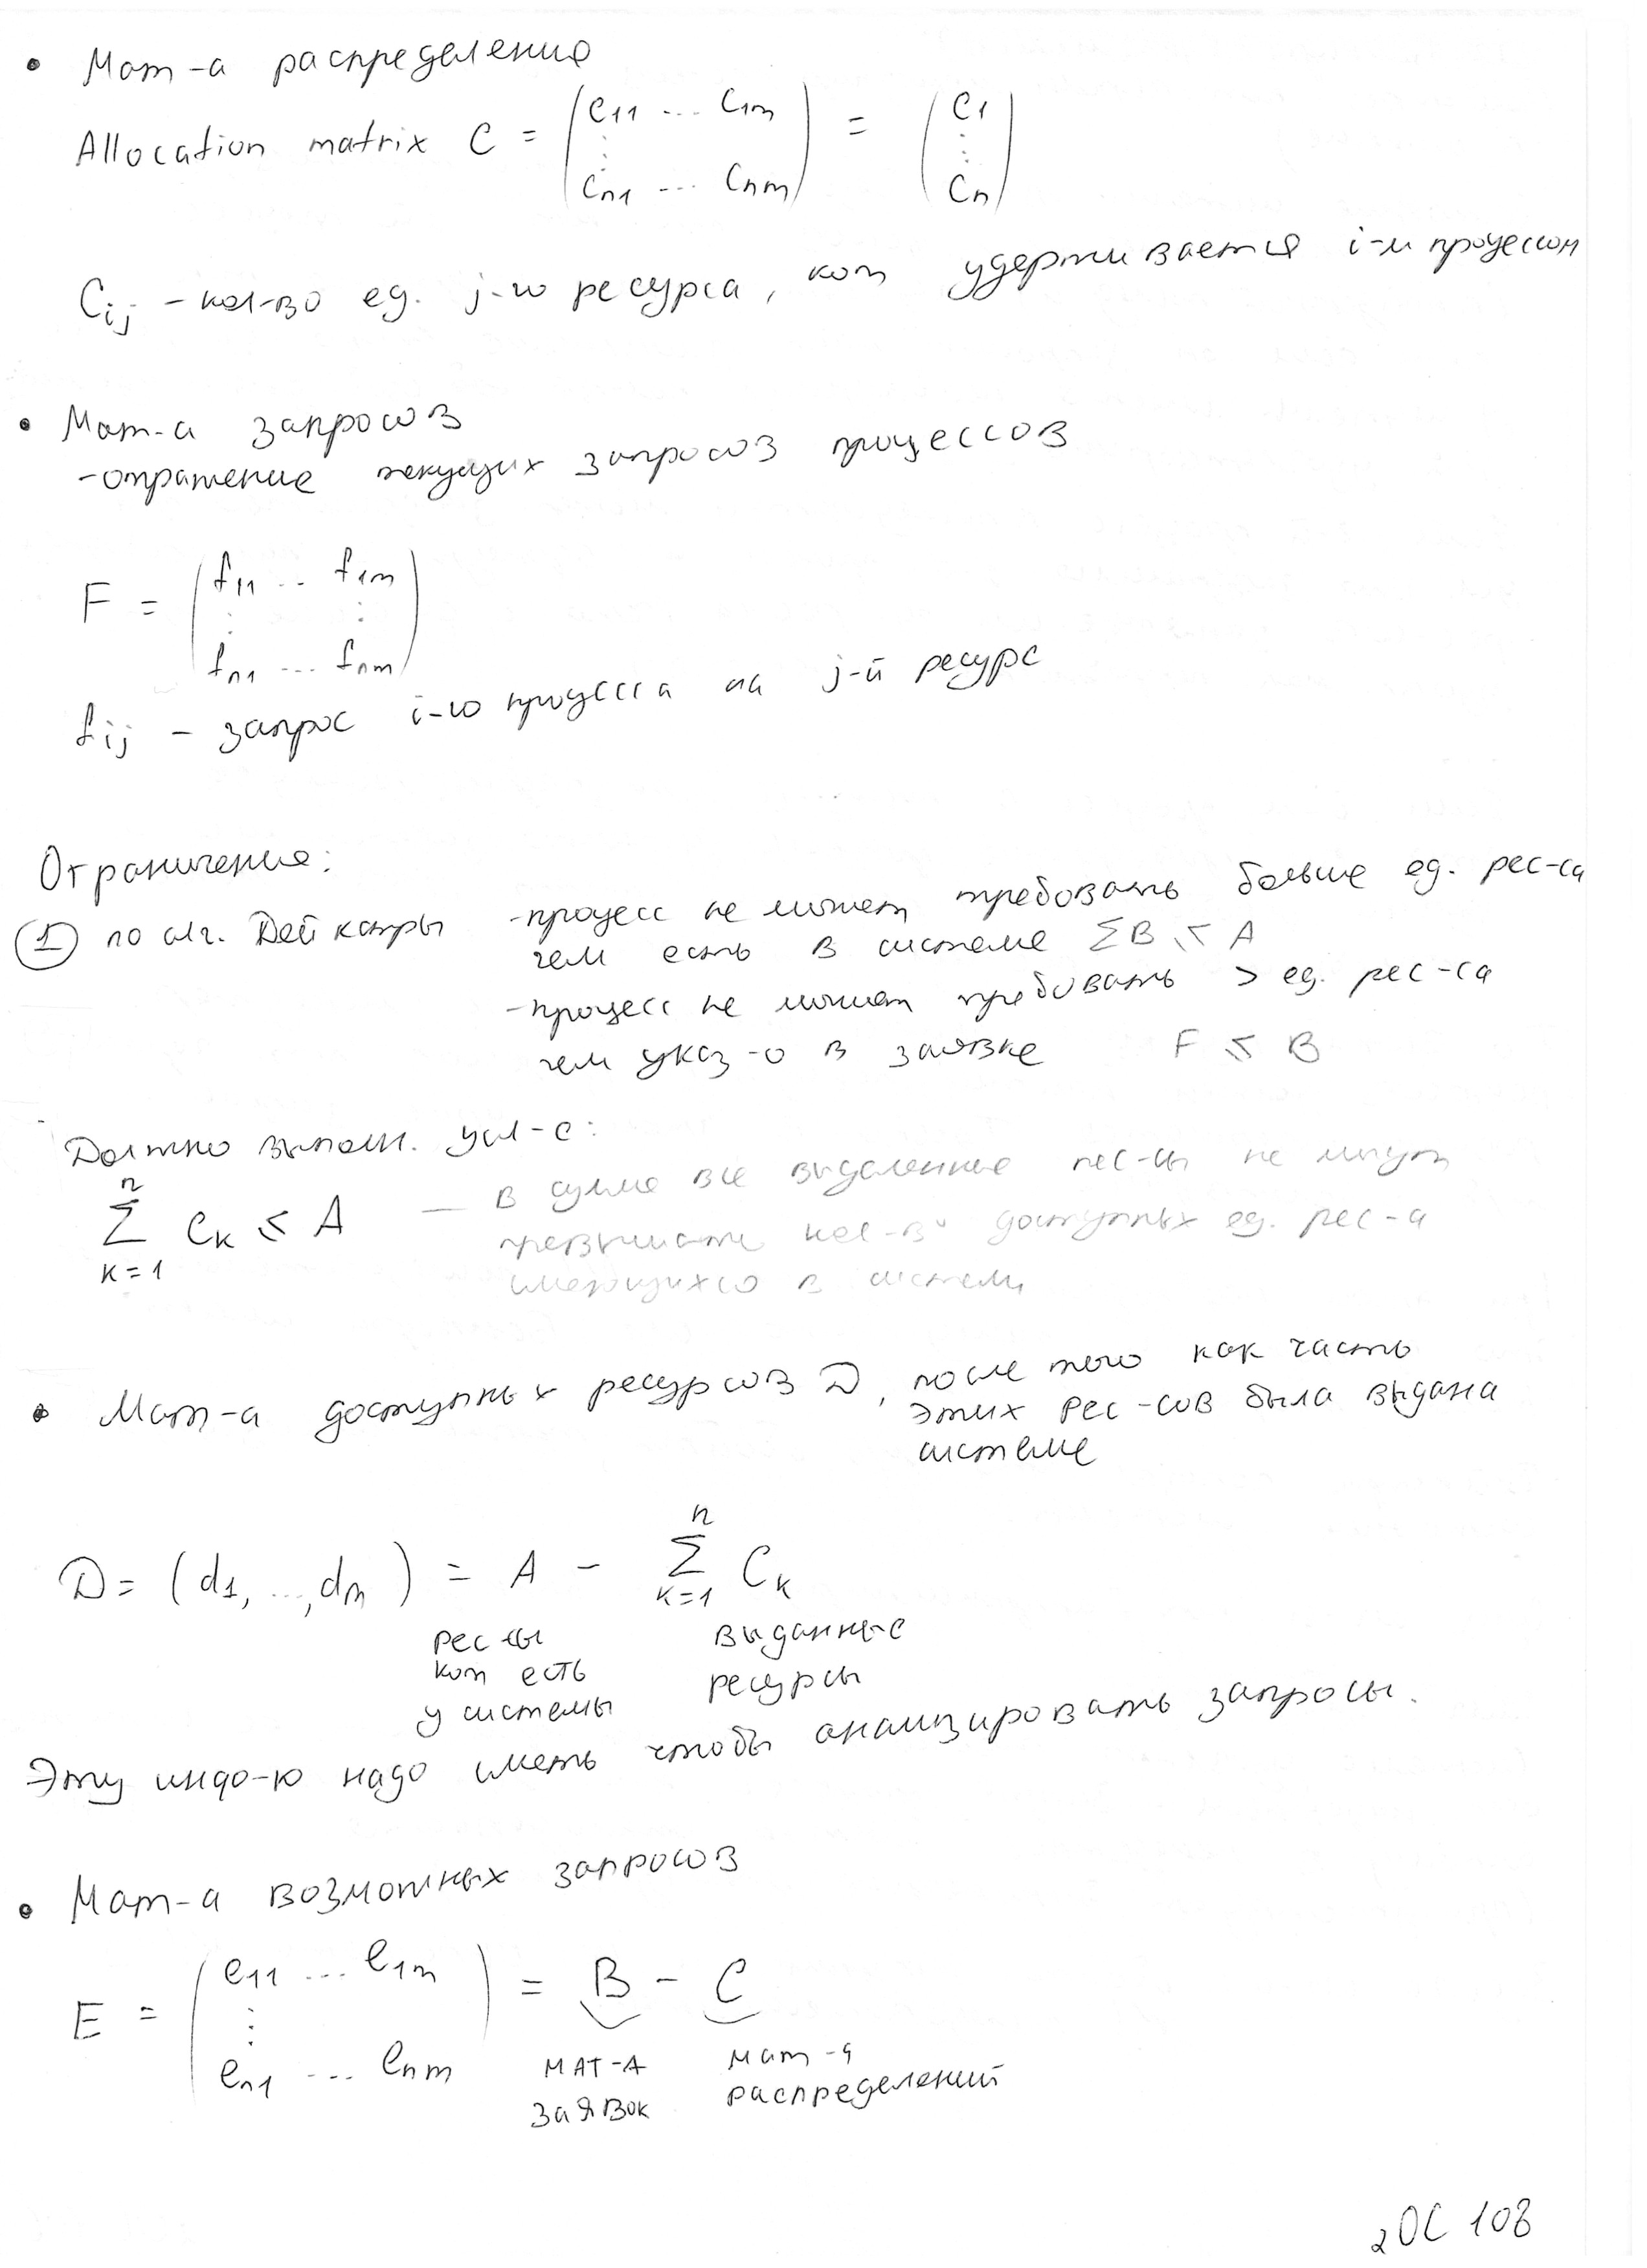 • Мат-а распределения
Allocation matrix C = (c11 ... c1m ⋮ cn1 ... cnm) = (c1 ⋮ cn)
Cij - кол-во ед. j-го ресурса, кот удерживается i-м процессом
• Мат-а запросов
- отражение текущих запросов процессов
F = (f11 ... f1m ⋮ ⋮ fn1 ... fnm)
fij - запрос i-го процесса на j-й ресурс
Ограничения:
① по алг. Дейкстры - процесс не может требовать больше ед. рес-са
чем есть в системе ΣB ≤ A
- процесс не может требовать > ед. рес-са
чем указ-о в заявке F ≤ B
Должно выполн. усл-е:
n
Σ Ck ≤ A — в сумме все выделенные рес-сы не могут
k=1
превышать кол-во доступных ед. рес-а
имеющихся в системе
• Мат-а доступных ресурсов D, после того как часть
этих рес-сов была выдана
системе
D = (d1, ..., dm) = A - Σ Ck
n
k=1
рес-сы
кот есть
у системы
выданные
ресурсы
Эту инфо-ю надо иметь чтобы анализировать запросы.
• Мат-а возможных запросов
E = (e11 ... e1m ⋮ en1 ... enm) = B - C
МАТ-А
заявок
мат-а
распределений
2ОС 108